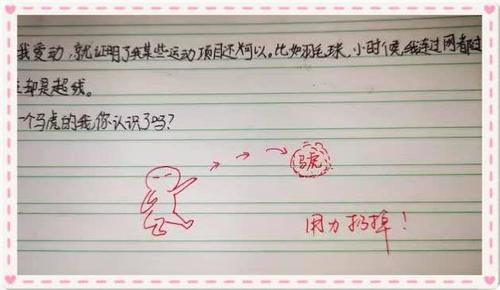 我爱动，就证明了我某些运动项目还可以。比如羽毛球，小时候我连过网都过
却是超线。
一个马虎的我，你认识了吗？
马虎
用力扔掉！